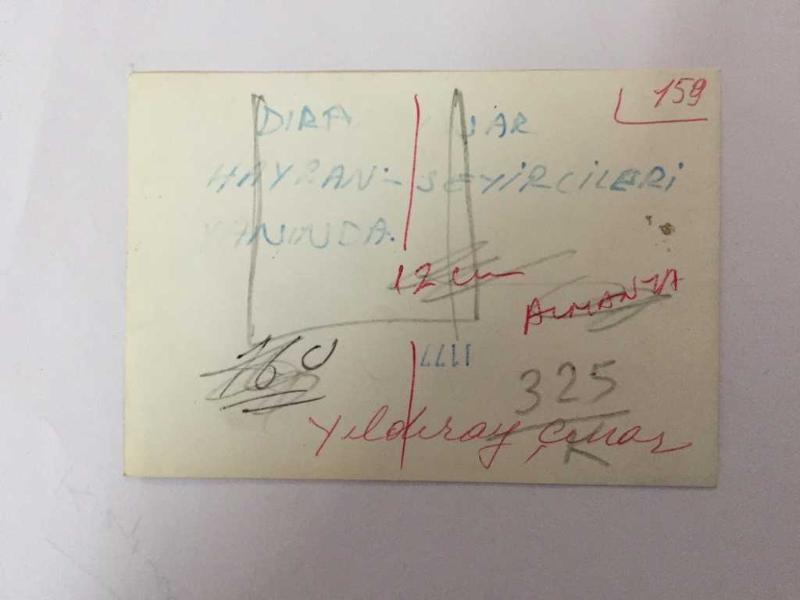 159
HAYRAN-SEYİRCİLERİ
YANINDA.
12 cm
ALMANYA
16
1177
325
Yıldıray Çınar